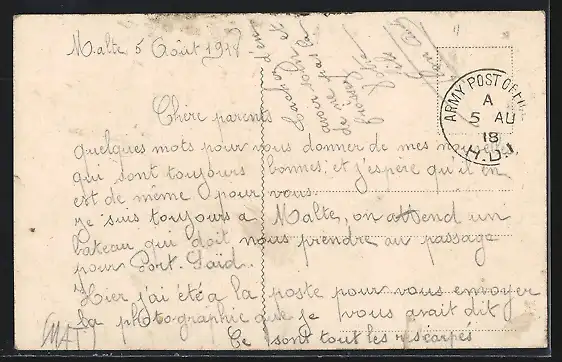 Malte 5 Août 1918
Chère parents
quelques mots pour vous donner de mes nouvelles
qui sont toujours bonnes, et j'espère qu'il en
est de même pour vous.
je suis toujours a Malte, on attend un
bateau qui doit nous prendre au passage
pour Port-Saïd.
Hier j'ai été a la poste pour vous envoyer
la photographie que je vous avait dit
Ce sont tout les rescarpés
ARMY POST OFFICE
A
5 AU
18
H.D.1
(MAT)